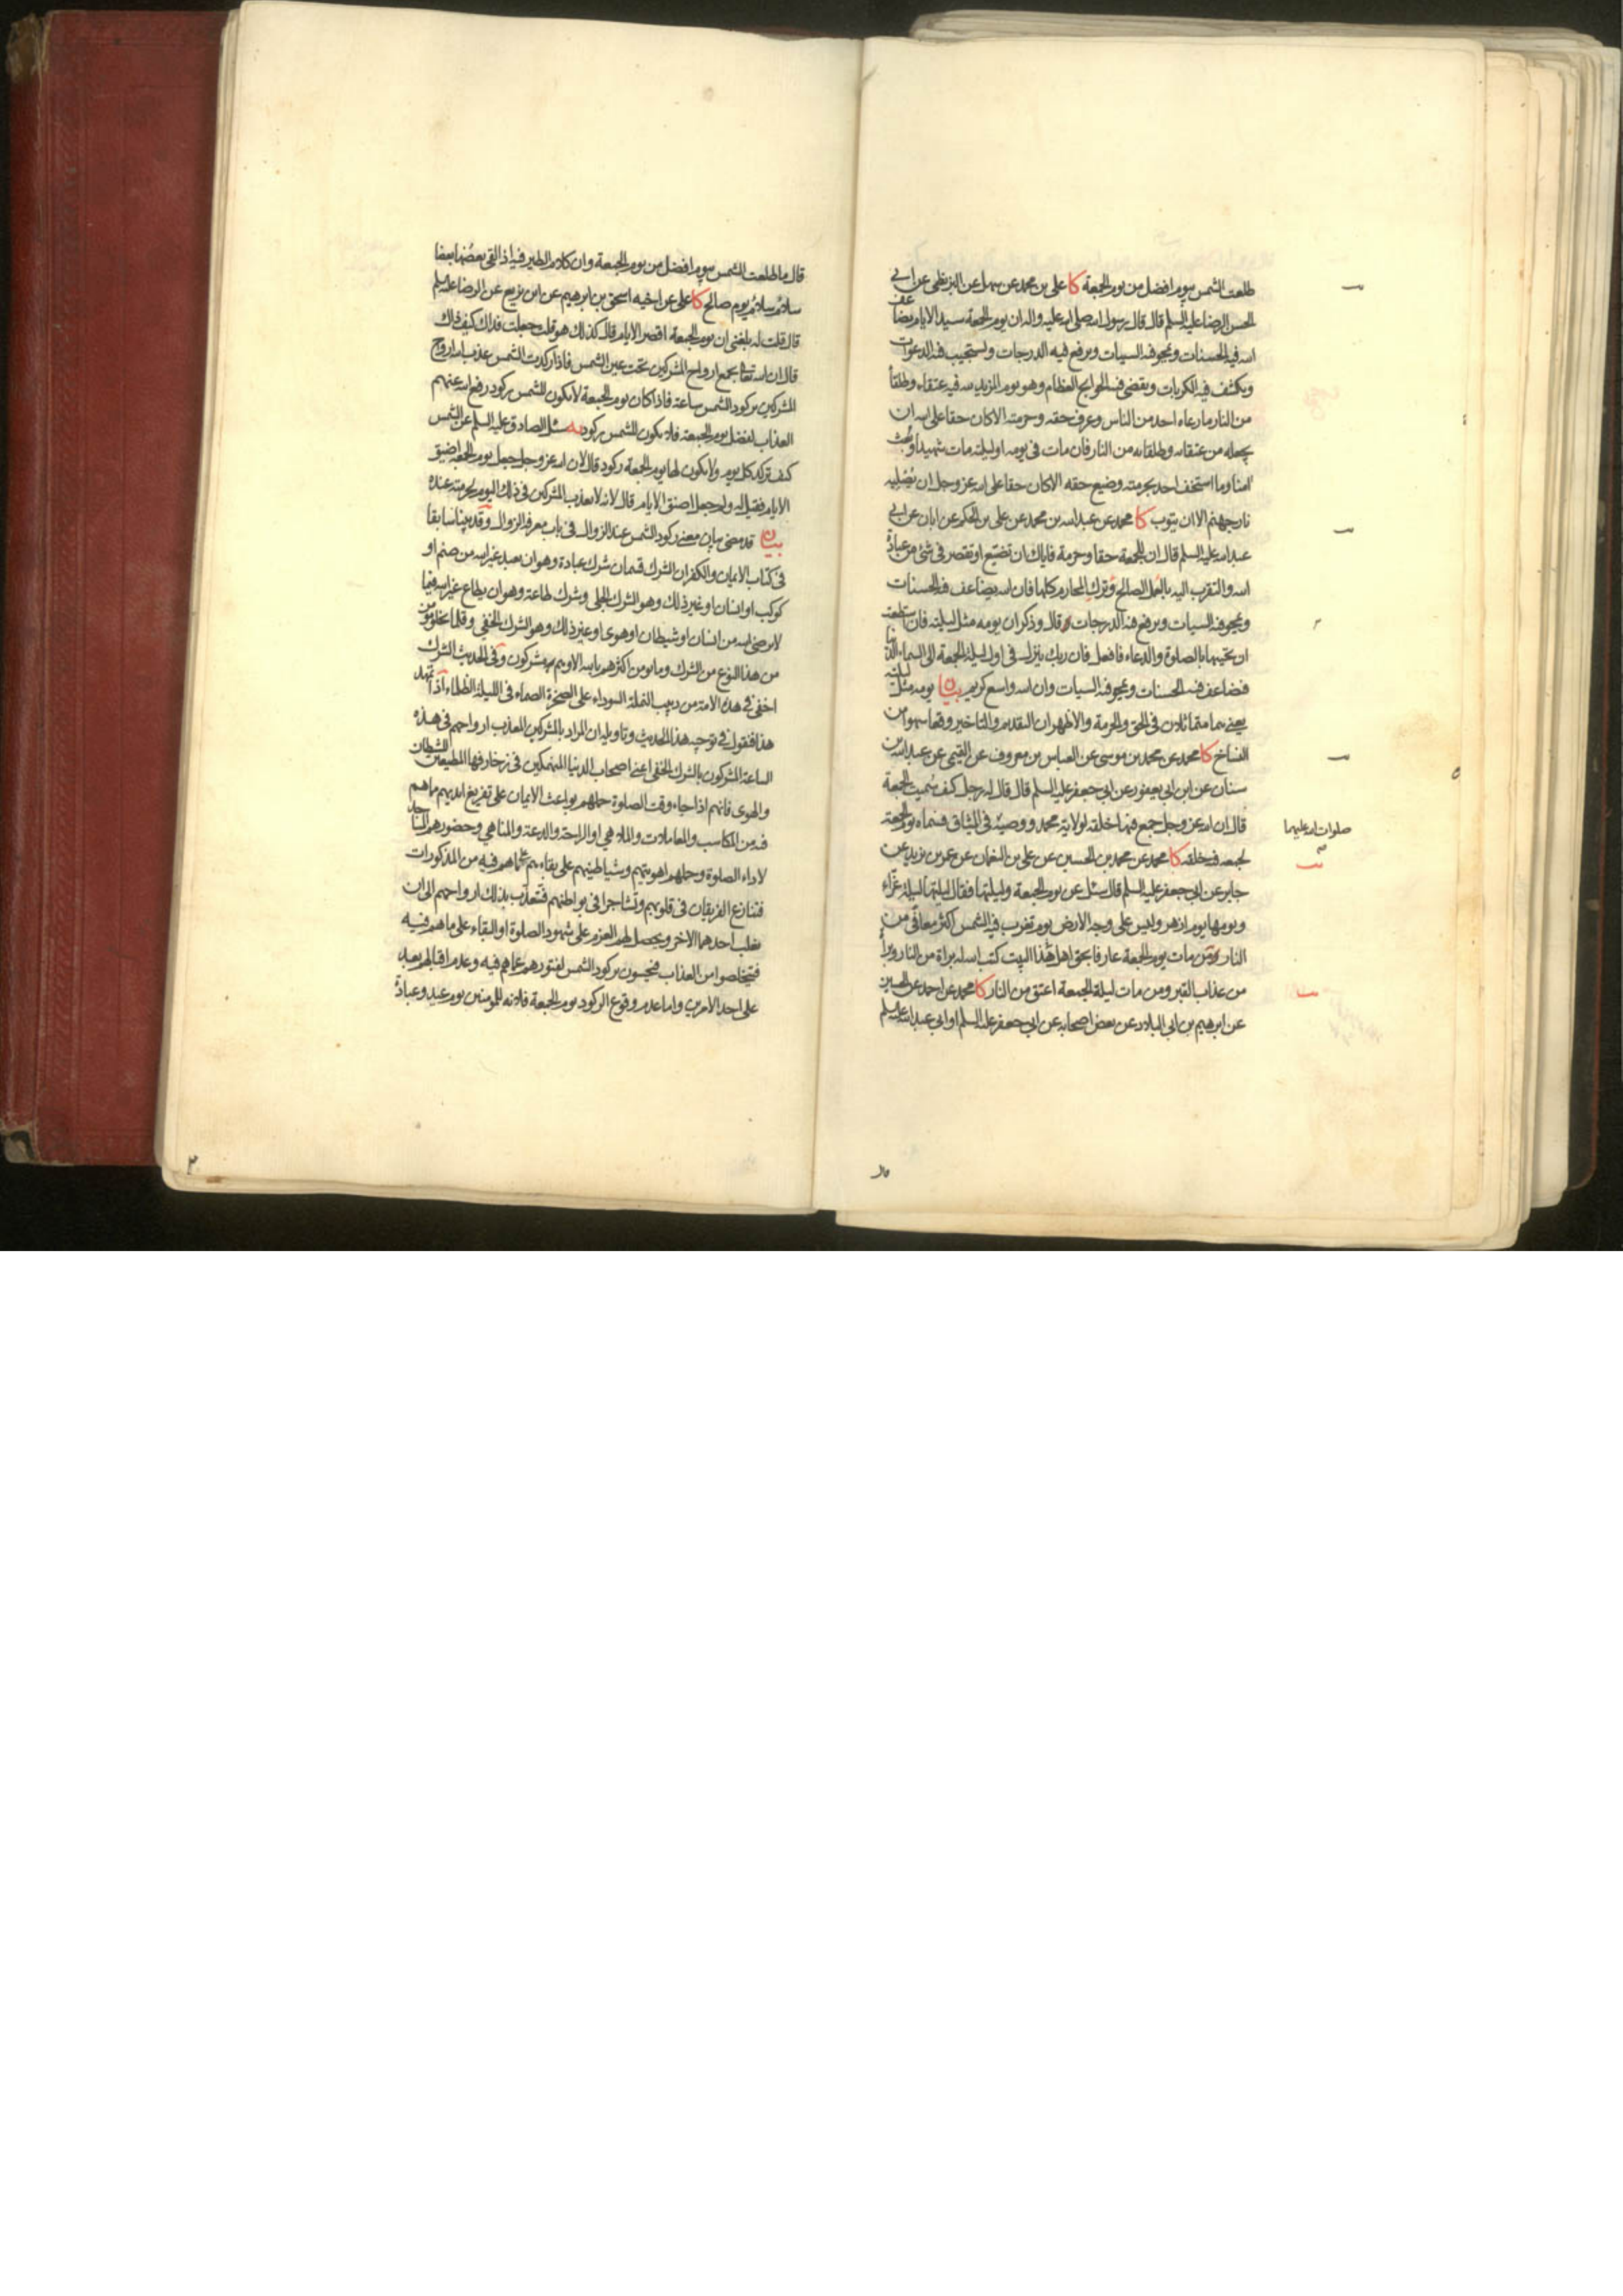 طلعت الشمس بيوم افضل من يوم الجمعة كا علي بن محمد عن سهل عن البزنطي عن ابي
الحسن الرضا عليه السلم قال قال رسول الله صلى الله عليه واله ان يوم الجمعة سيد الايام يضاعف
الله فيه الحسنات ويمحو فيه السيات ويرفع فيه الدرجات ويستجيب فيه الدعوات
ويكشف فيه الكربات ويقضي فيه الحوايج العظام وهو يوم المزيد لله فيه عتقاء وطلقاء
من النار ما دعاء احد من الناس وعرف حقه وحرمته الا كان حقا على الله ان
يجعله من عتقائه وطلقائه من النار فان مات في يومه او ليلته مات شهيدا وبعث
امنا وما استخف احد بحرمته وضيع حقه الا كان حقا على الله عز وجل ان يصليه
نار جهنم الا ان يتوب كا محمد عن عبد الله بن محمد عن علي بن الحكم عن ابان عن ابي
عبد الله عليه السلم قال ان للجمعة حقا وحرمة فاياك ان تضيع او تقصر في شئ من عبادة
الله والتقرب اليه بالعمل الصالح وترك المحارم كلها فان الله يضاعف فيه الحسنات
ويمحو فيه السيات ويرفع فيه الدرجات قال وذكر ان يومه مثل ليلته فان استطعت
ان تحييها بالصلوة والدعاء فافعل فان ربك ينزل في اول ليلة الجمعة الى السماء الدنيا
فضاعف فيه الحسنات ويمحو فيه السيات وان الله واسع كريم بيان يومه مثل ليلته
يعني هما متماثلان في الحق والحرمة والاظهر ان التقديم والتاخير وقعا سهوا من
النساخ كا محمد عن محمد بن موسى عن العباس بن معروف عن القمي عن عبد الله بن
سنان عن ابن ابي يعفور عن ابي جعفر عليه السلم قال قال له رجل كيف سميت الجمعة
قال ان الله عز وجل جمع فيها خلقه لولاية محمد ووصيه في الميثاق فسماه يوم الجمعة
صلوات الله عليهما
لجمعه فيه خلقه كا محمد عن محمد بن الحسين عن علي بن النعمان عن عمر بن يزيد عن
جابر عن ابي جعفر عليه السلم قال سئل عن يوم الجمعة وليلتها فقال ليلتها ليلة غراء
ويومها يوم ازهر وليس على وجه الارض يوم تغرب فيه الشمس اكثر معافى من
النار ومن مات يوم الجمعة عارفا بحق اهل هذا البيت كتب الله له براة من النار وبراة
من عذاب القبر ومن مات ليلة الجمعة اعتق من النار كا محمد عن احمد عن الحسين
عن ابرهيم بن ابي البلاد عن بعض اصحابه عن ابي جعفر عليه السلم او ابي عبد الله عليه السلم
قال
قال ما طلعت الشمس بيوم افضل من يوم الجمعة وان كلام الطير فيه اذا لقي بعضها بعضا
سلام سلام يوم صالح كا علي عن اخيه اسحق بن ابرهيم عن ابن بزيع عن الرضا عليه السلم
قال قلت له بلغني ان يوم الجمعة اقصر الايام قال كذلك هو قلت جعلت فداك كيف ذاك
قال ان الله تعالى يجمع ارواح المشركين تحت عين الشمس فاذا ركدت الشمس عذب الله ارواح
المشركين بركود الشمس ساعة فاذا كان يوم الجمعة لا يكون للشمس ركود رفع الله عنهم
العذاب لفضل يوم الجمعة فلا يكون للشمس ركود يه سئل الصادق عليه السلم عن الشمس
كيف تركد كل يوم ولا يكون لها يوم الجمعة ركود قال لان الله عز وجل جعل يوم الجمعة اضيق
الايام فقيل له ولم جعله اضيق الايام قال لانه لا يعذب المشركين في ذلك اليوم لحرمته عنده
بيان قد مضى بيان معنى ركود الشمس عند الزوال في باب معرفة الزوال وقد بينا سابقا
في كتاب الايمان والكفر ان الشرك قسمان شرك عبادة وهو ان يعبد غير الله من صنم او
كوكب او انسان او غير ذلك وهو الشرك الجلي وشرك طاعة وهو ان يطاع غير الله فيما
لا يرضى الله من انسان او شيطان او هوى او غير ذلك وهو الشرك الخفي وقلما يخلو مؤمن
من هذا النوع من الشرك وما يؤمن اكثرهم بالله الا وهم مشركون وفي الحديث الشرك
اخفى في هذه الامة من دبيب النملة السوداء على الصخرة الصماء في الليلة الظلماء اذا تمهد
هذا فنقول في توجيه هذا الحديث وتاويله ان المراد بالمشركين المعذب ارواحهم في هذه
الساعة المشركون بالشرك الخفي اعني اصحاب الدنيا المنهمكين في زخارفها المطيعين للشيطان
والهوى فانهم اذا جاء وقت الصلوة حملهم بواعث الايمان على تفريغ ايديهم مما هم
فيه من المكاسب والمعاملات والملاهي او الراحة والدعة والمناهي وحضورهم المساجد
لاداء الصلوة وحملهم اهويتهم وشياطينهم على بقاءهم على ما هم فيه من المذكورات
فتنازع الفريقان في قلوبهم وتشاجرا في بواطنهم فتعذب بذلك ارواحهم الى ان
يغلب احدهما الاخر ويحصل لهم العزم على شهود الصلوة او البقاء على ما هم فيه
فيتخلصوا من العذاب فيحسون بركود الشمس لفتورهم عما هم فيه وعدم اقبالهم بعد
على احد الامرين واما عدم وقوع الركود يوم الجمعة فلانه للمؤمنين يوم عيد وعبادة